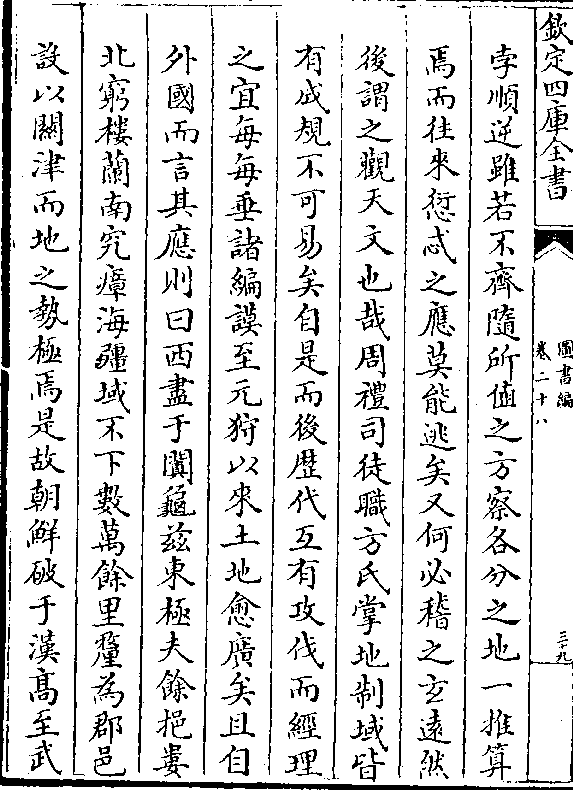 欽定四庫全書
圖書編
卷二十八
三十九
孛順逆雖若不齊隨所值之方察各分之地一推算
焉而往來愆忒之應莫能逃矣又何必稽之玄遠然
後謂之觀天文也哉周禮司徒職方氏掌地制域皆
有成規不可易矣自是而後歴代互有攻伐而經理
之宜每每垂諸編謨至元狩以來土地愈廣矣且自
外國而言其應則曰西盡于闐龜兹東極夫餘挹婁
北窮樓蘭南究瘴海疆域不下數萬餘里釐為郡邑
設以關津而地之勢極焉是故朝鮮破于漢髙至武